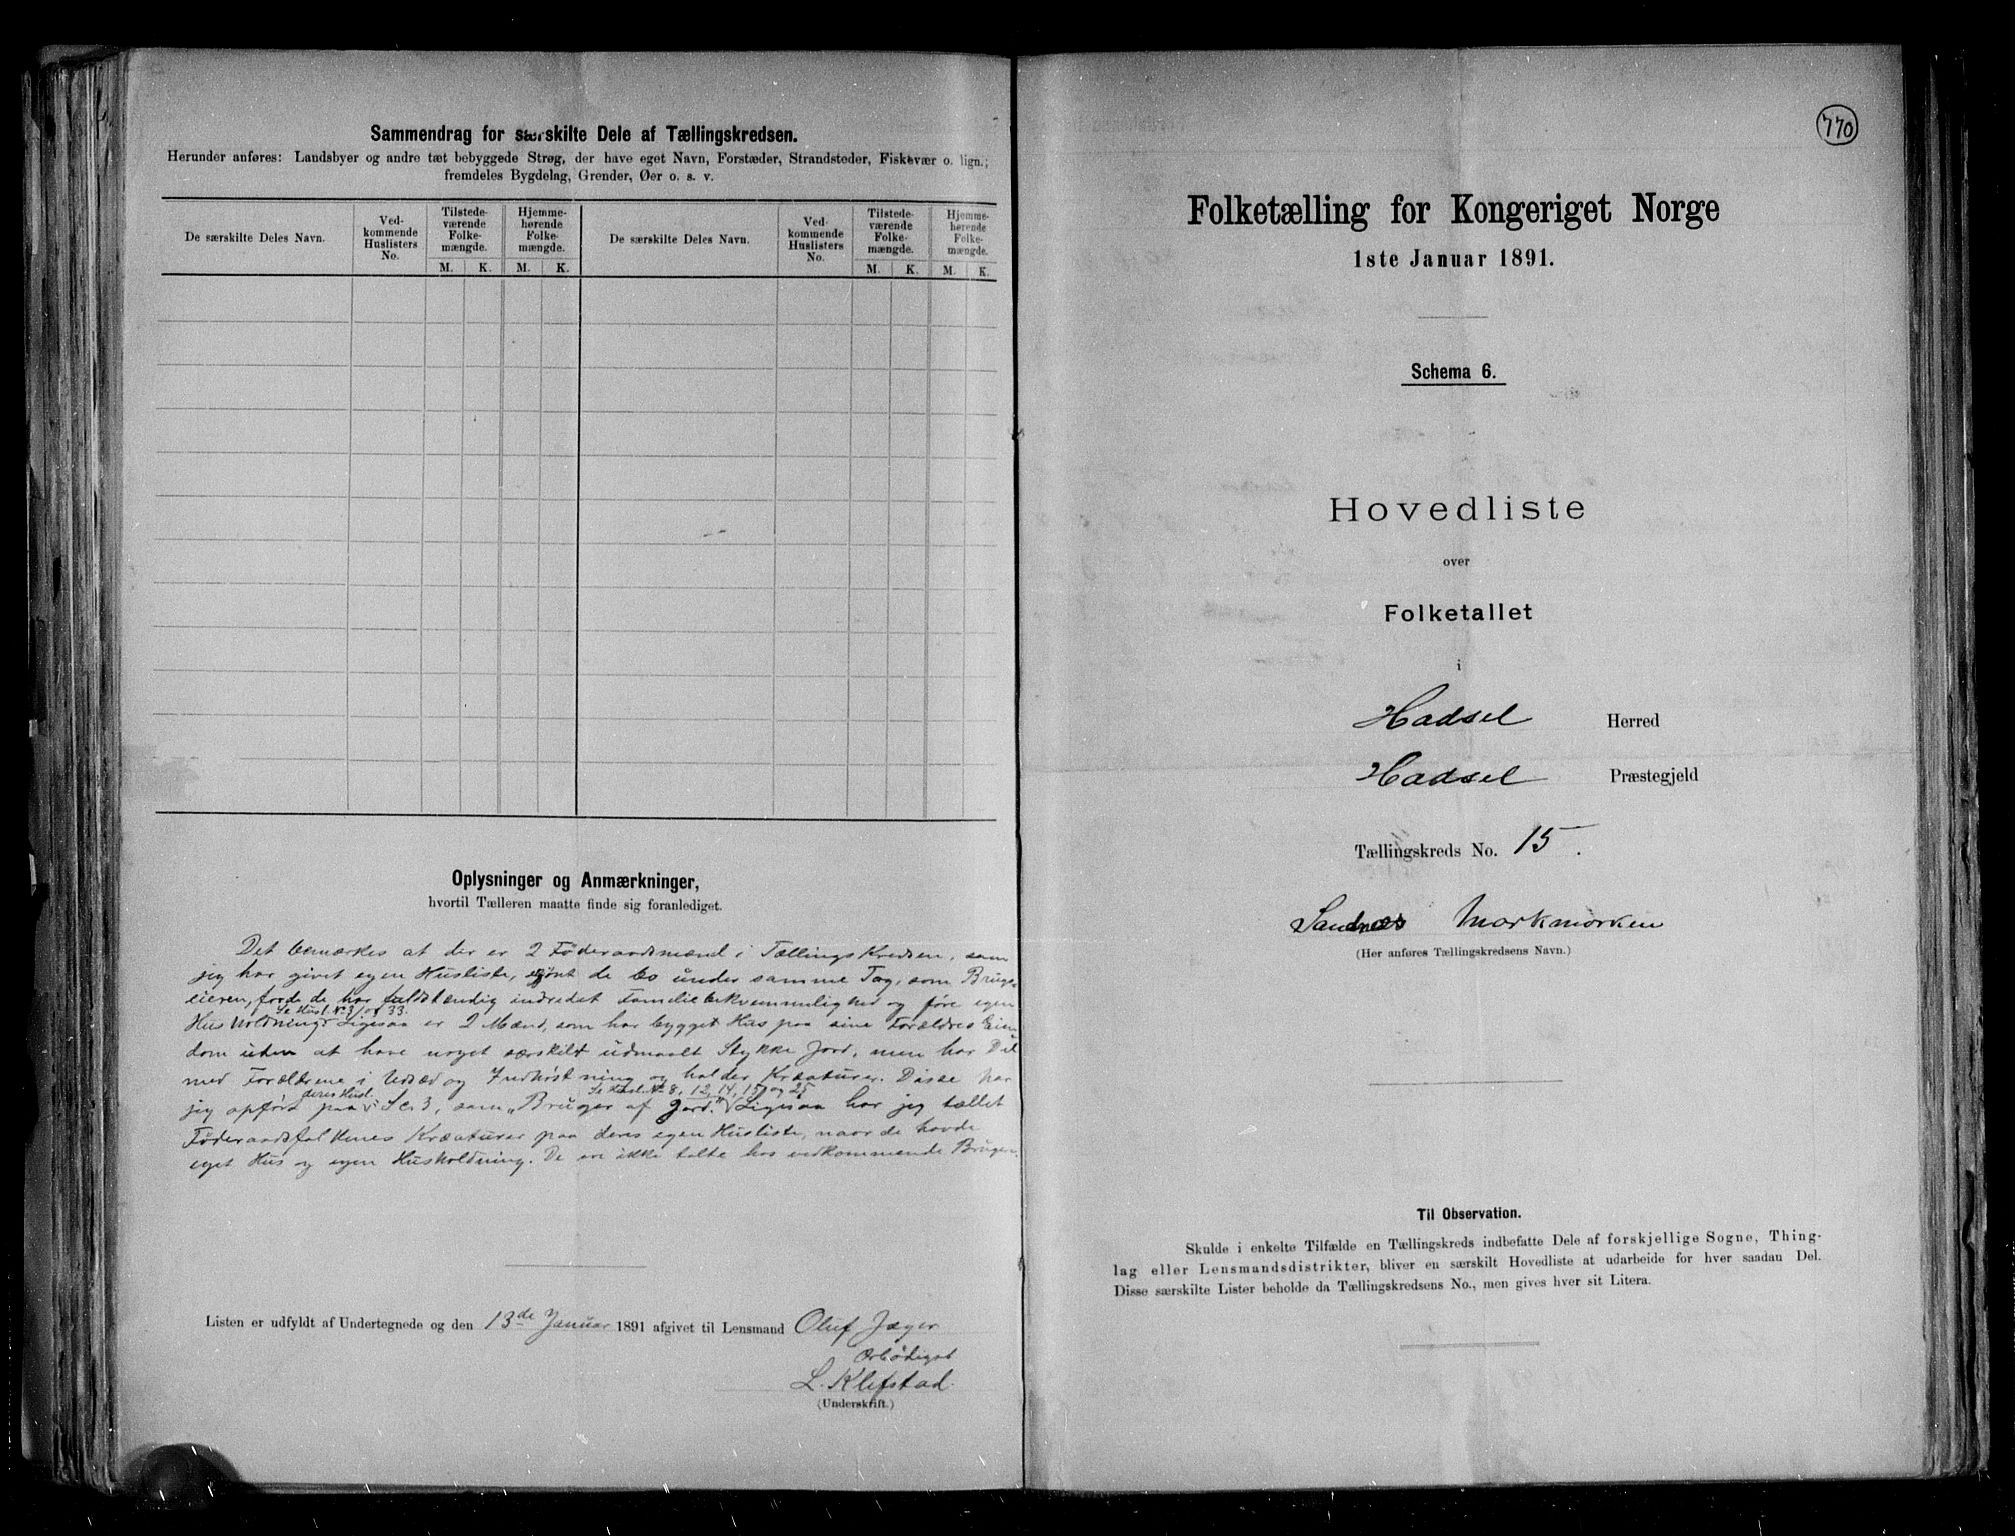 Sammendrag for særskilte Dele af Tællingskredsen.
Herunder anføres: Landsbyer og andre tæt bebyggede Strøg, der have eget Navn, Forstæder, Strandsteder, Fiskevær o. lign.;
fremdeles Bygdelag, Grender, Øer o. s. v.
De særskilte Deles Navn.
Ved-
kommende
Huslisters
No.
Tilstede-
værende
Folke-
mængde.
M. K.
Hjemme-
hørende
Folke-
mængde.
M. K.
De særskilte Deles Navn.
Ved-
kommende
Huslisters
No.
Tilstede-
værende
Folke-
mængde.
M. K.
Hjemme-
hørende
Folke-
mængde.
M. K.
Oplysninger og Anmærkninger,
hvortil Tælleren maatte finde sig foranlediget.
Det bemærkes at der er 2 Föderaadsmænd i TællingsKredsen, som
jeg har givet egen Husliste, skjönt de bo under samme Tag, som Bruge-
eieren, fordi de har fuldstændig indredet Familiebekvemmelighed og före egen
Se Husl. No 31 og 33.
Husholdning. Ligesaa er 2 Mænd, som har bygget Hus paa sine Forældres Eien
dom uden at have noget særskilt udmaalt Stykke Jord, men har Del
med Forældrene i Udsæd og Indhöstning og holder Kreaturer. Disse har
deres Husl. Se Husl. No 8, 12, 14, 15 og 25
jeg opfört paa Sc. 3, som "Bruger af Jord." Ligesaa har jeg tællet
Föderaadsfolkenes Kreaturer paa deres egen Husliste, naar de havde
eget Hus og egen Husholdning. De ere ikke talte hos vedkommende Bruger.
Listen er udfyldt af Undertegnede og den 13de Januar 1891 afgivet til Lensmand Oluf Jæger
Ærbödigst
L. Klefstad.
(Underskrift.)
770
Folketælling for Kongeriget Norge
1ste Januar 1891.
Schema 6.
Hovedliste
over
Folketallet
i
Hadsel Herred
Hadsel Præstegjeld
Tællingskreds No. 15.
Sandnes Markmörken
(Her anføres Tællingskredsens Navn.)
Til Observation.
Skulde i enkelte Tilfælde en Tællingskreds indbefatte Dele af forskjellige Sogne, Thing-
lag eller Lensmandsdistrikter, bliver en særskilt Hovedliste at udarbeide for hver saadan Del.
Disse særskilte Lister beholde da Tællingskredsens No., men gives hver sit Litera.